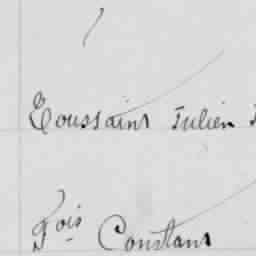 Toussaint Julien
Fois Constans